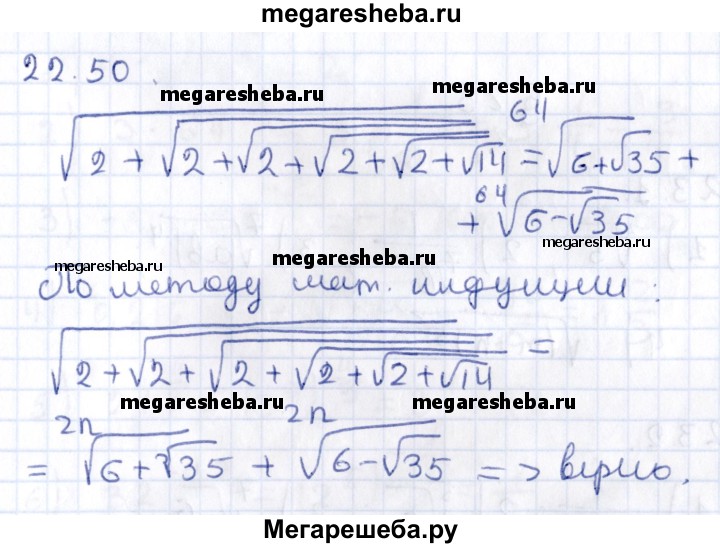 megaresheba.ru
22.50.
megaresheba.ru megaresheba.ru
√(2 + √(2 + √(2 + √(2 + √(2 + √14))))) = ⁶⁴√(6 + √35) +
+ ⁶⁴√(6 - √35)
megaresheba.ru megaresheba.ru megaresheba.ru
По методу мат. индукции:
√(2 + √(2 + √(2 + √(2 + √(2 + √14))))) =
megaresheba.ru megaresheba.ru
= ²ⁿ√(6 + √35) + ²ⁿ√(6 - √35) => верно.
Мегарешеба.ру